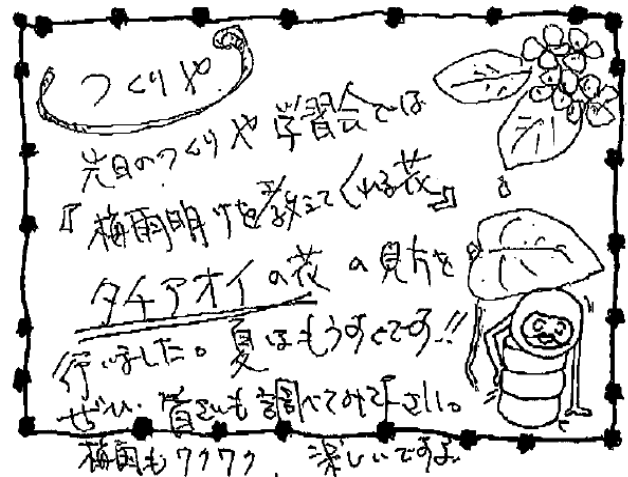 つくりや
先日のつくりや学習会では
『梅雨明けを教えてくれる花』
タチアオイの花の見方を
行いました。夏はもうすぐです!!
ぜひ、皆さんも調べてみて下さい。
梅雨もワクワク、楽しいですよ